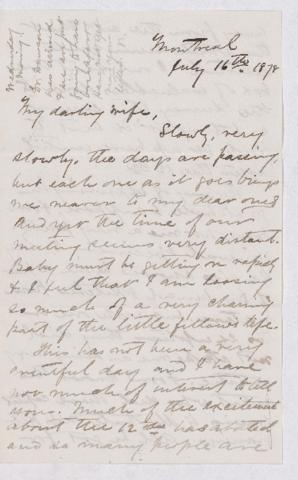 Montreal
July 16th 1878
My darling wife,
Slowly, very
slowly, the days are passing,
but each one as it goes brings
me nearer to my dear ones
And yet the time of our
meeting seems very distant.
Baby must be getting on rapidly
& I feel that I am loosing
so much of a very charming
part of the little fellows life.
This has not been a very
eventful day and I have
not much of interest to tell
you. Much of the excitement
about the 12th has abated
and so many people are
Wednesday
Morning